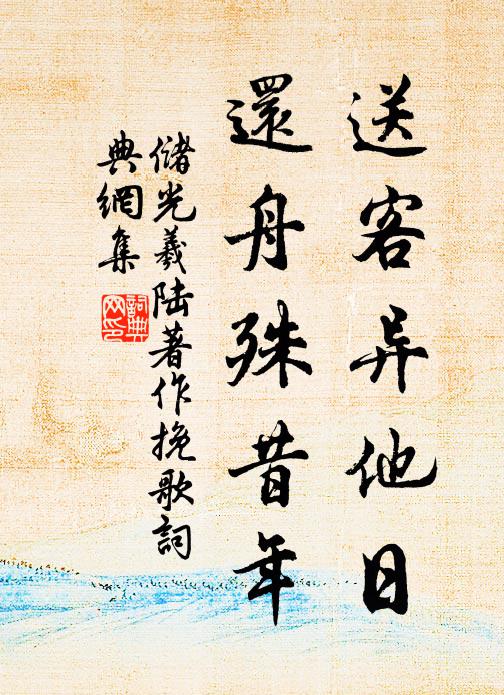 送客异他日
還舟殊昔年
儲光羲陸著作挽歌詞
典網集
詞典
网印